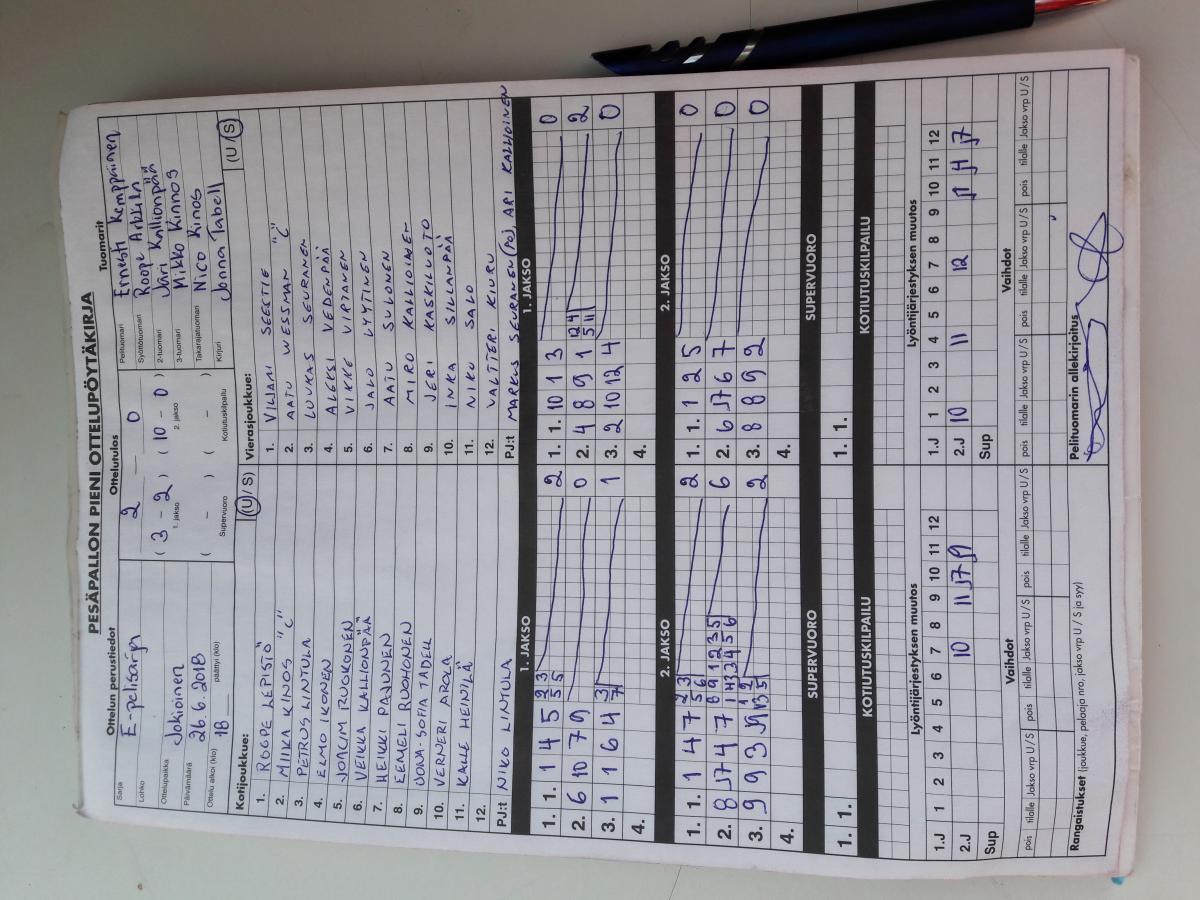 PESÄPALLON PIENI OTTELUPÖYTÄKIRJA
Ottelun perustiedot
Sarja E-pelisarja
Lohko
Ottelupaikka Jokioinen
Päivämäärä 26.6.2018
Ottelu alkoi (klo) 18 päättyi (klo)
Ottelutulos
2 0
( 3 - 2 ) ( 10 - 0 )
1. jakso 2. jakso
( - ) ( - )
Supervuoro Kotiutuskilpailu
Tuomarit
Pelituomari Ernesti Kemppainen
Syöttötuomari Roope Arkkila
2-tuomari Jari Kallionpää
3-tuomari Mikko Kinnos
Takarajatuomari Nico Kinos
Kirjuri Jonna Tabell
Kotijoukkue: (U / S)
1. ROOPE LEPISTÖ
2. MIIKA KINOS "C"
3. PETRUS LINTULA
4. ELMO IKONEN
5. JOACIM RUOKONEN
6. VEIKKA KALLIONPÄÄ
7. HEIKKI PAJUNEN
8. EEMELI RUOHONEN
9. OONA-SOFIA TABELL
10. VERNERI AROLA
11. KALLE HEINILÄ
12.
PJ:t NIKO LINTULA
Vierasjoukkue: (U / S)
1. VILJAMI SEETTIE
2. AATU WESSMAN "C"
3. LUUKAS SEURANEN
4. ALEKSI VEDENPÄÄ
5. VIKKE VIRTANEN
6. JALO LYYTINEN
7. AATU SULONEN
8. MIRO KALLIOINEN
9. JERI KASKILUOTO
10. INKA SILLANPÄÄ
11. NIKU SALO
12. VALTTERI KIURU
PJ:t MARKUS SEURANEN (PO), ARI KALLIOINEN
1. JAKSO
1. 1. 1 4 5 2 3 5 5 2
2. 6 10 7 9 0
3. 1 1 6 4 3 7 1
4.
1. JAKSO
1. 1. 10 1 3 0
2. 4 8 9 1 12 4 5 11 2
3. 2 10 12 4 0
4.
2. JAKSO
1. 1. 1 4 7 2 3 5 6 2
2. 8 J7 4 7 6
3. 9 9 3 2
4.
2. JAKSO
1. 1. 1 2 5 0
2. 6 J7 6 7 0
3. 8 8 9 2 0
4.
SUPERVUORO
1. 1.
SUPERVUORO
1. 1.
KOTIUTUSKILPAILU
KOTIUTUSKILPAILU
Lyöntijärjestyksen muutos
1 2 3 4 5 6 7 8 9 10 11 12
1.J
2.J 10 11 J7
Sup
Lyöntijärjestyksen muutos
1 2 3 4 5 6 7 8 9 10 11 12
1.J
2.J 10 11 12 J7
Sup
Vaihdot
pois tilalle Jakso vrp U / S pois tilalle Jakso vrp U / S pois tilalle Jakso vrp U / S
Vaihdot
pois tilalle Jakso vrp U / S pois tilalle Jakso vrp U / S pois tilalle Jakso vrp U / S
Rangaistukset (joukkue, pelaaja nro, jakso vrp U / S ja syy)
Pelituomarin allekirjoitus